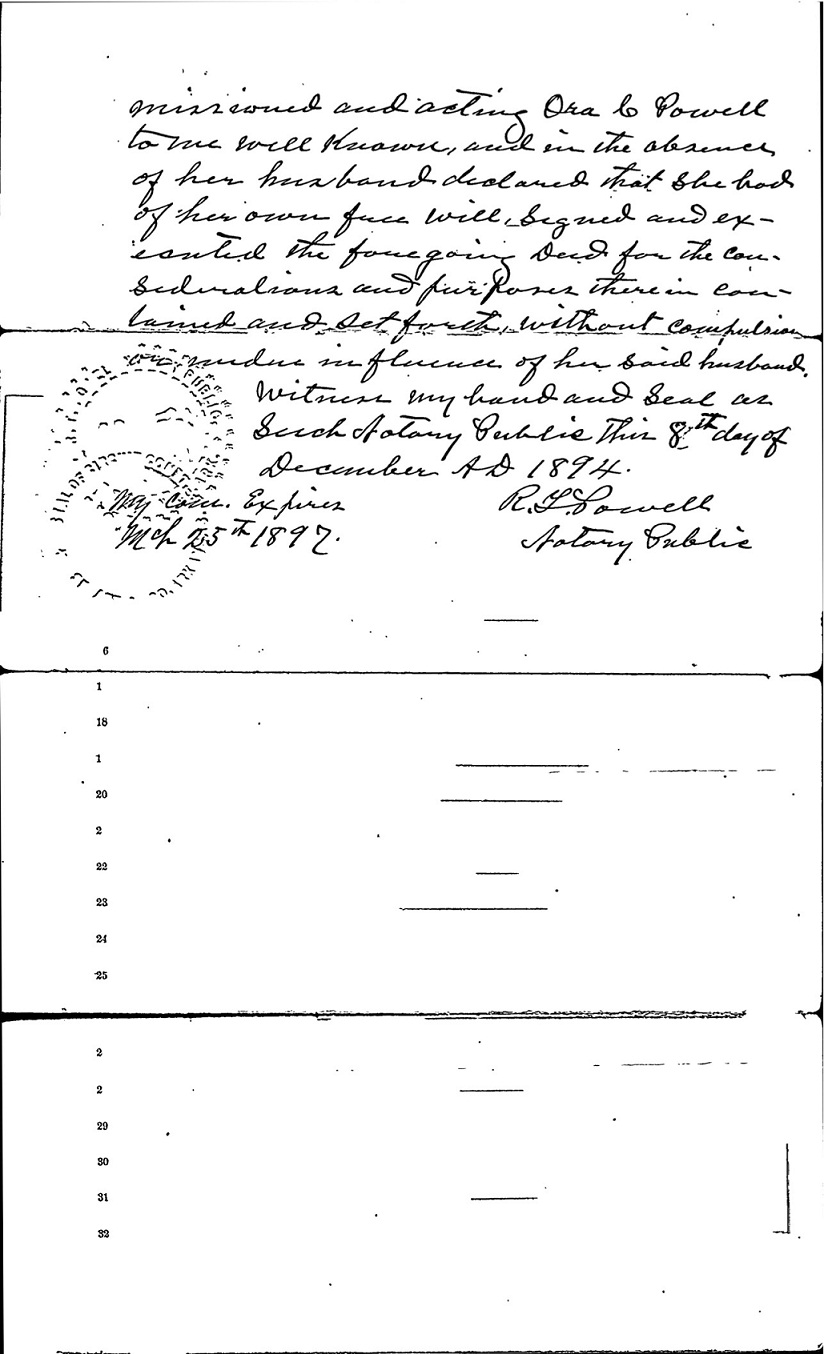 missioned and acting Ora C Powell
to me well Known, and in the absence
of her husband declared that She had
of her own free will, Signed and ex-
ecuted the foregoing Deed for the con-
siderations and purposes therein con-
tained and set forth, without compulsion
or undue influence of her said husband.
Witness my hand and Seal as
Such Notary Public this 8th day of
December AD 1894.
My Com. Expires
Mch 25th 1897.
R. L. Powell
Notary Public
PUBLIC
SEAL OF
6
1
18
1
20
2
22
23
24
25
2
2
29
30
31
32